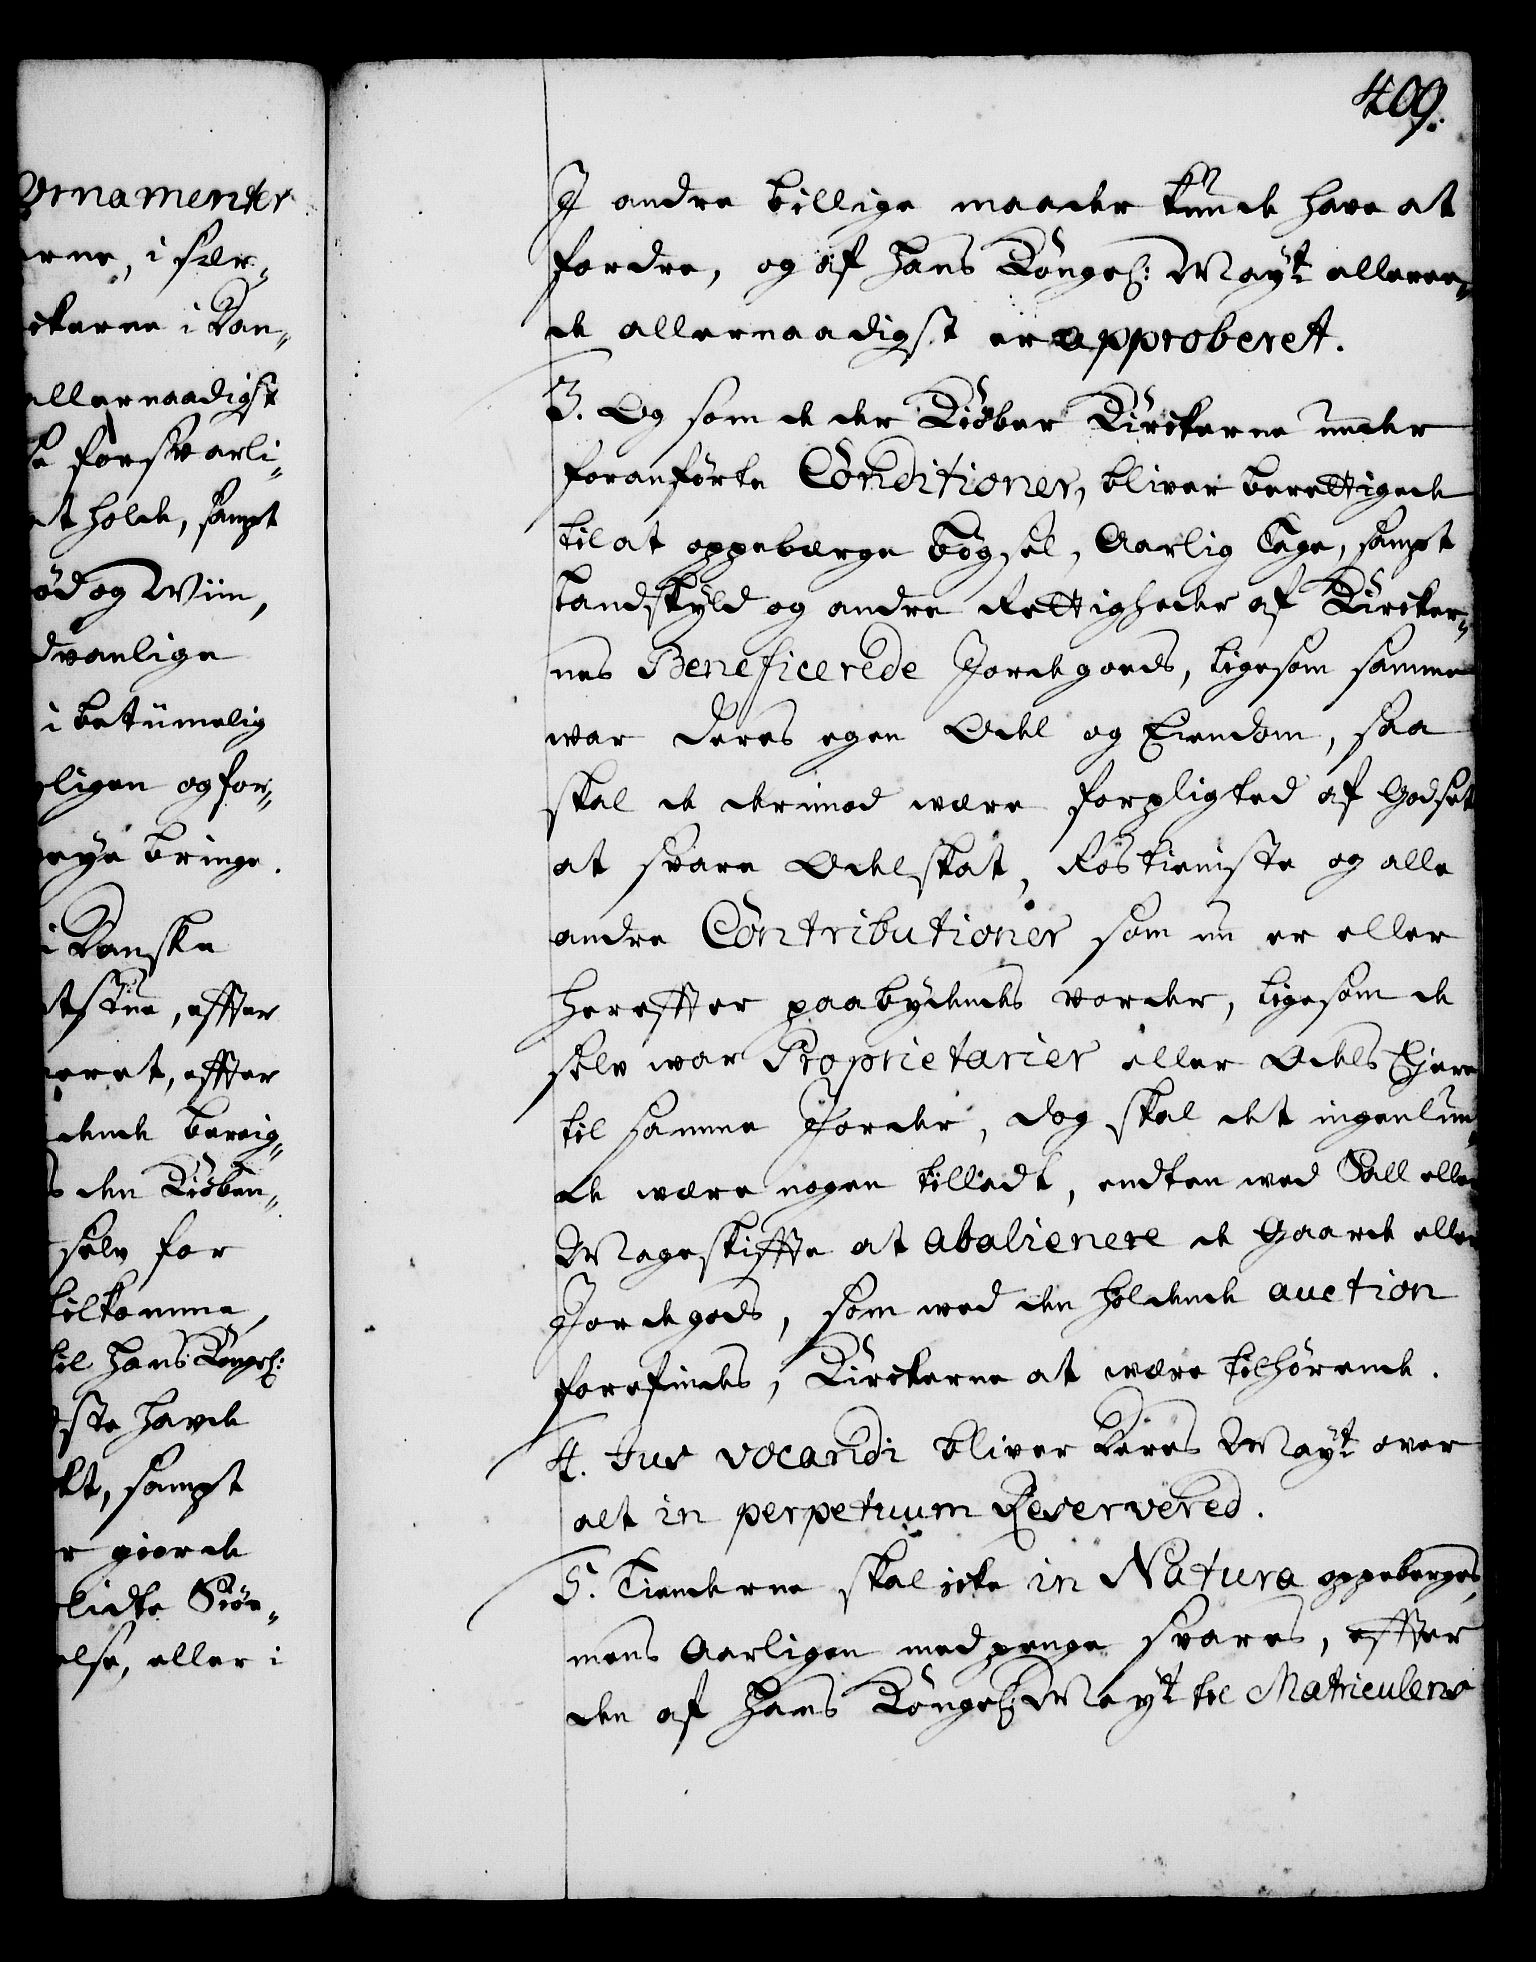 409.
Ornamenter
erne, i sær-
ckerne i Dan-
allernaadigst
forsvarli-
at holde, sampt
og Viin,
dvanlige
i betimelig
ligen og for-
veye bringe.
i Danske
effter
eret, effter
dende
den Kiöben-
selv for
tilkomme,
til Hans Kongel:
ste havde
sampt
giorde
else, eller i
I andre billige maader kunde have at
fordre, og af Hans Kongel: Mayt alleree-
de allernaadigst er approberet.
3. Og som de der Kiöber Kirckerne under
foranförte Conditioner, bliver berettigede
til at oppebærge Bögsel, Aarlig Tage, sampt
Landskyld og andre Rettigheder af Kircker-
nes Beneficerede Jordegoeds, ligesom samme
war deres egen Odel og Eiendom, saa
skal de derimod være forpligted af Godset
at svare Odelskat, Rostieniste og alle
andre Contributioner som nu er eller
hereffter paabydendes vorder, ligesom de
selv war Proprietarier eller Odels Ejere
til samme Jorder, dog skal det ingenlun-
de være nogen tilladt, endten ved Sall eller
Mageskiffte at abalienere de Gaarde eller
Jordegods, som ved den holdende auction
forefindes, Kirckerne at være tilhörende.
4. Jus vocandi bliver Deres Mayt over
alt in perpetuum Reservered.
5. Tienderne skal icke in Natura oppeberges,
mens Aarligen med penge svares, effter
den af Hans Kongel: Mayt til Matriculens